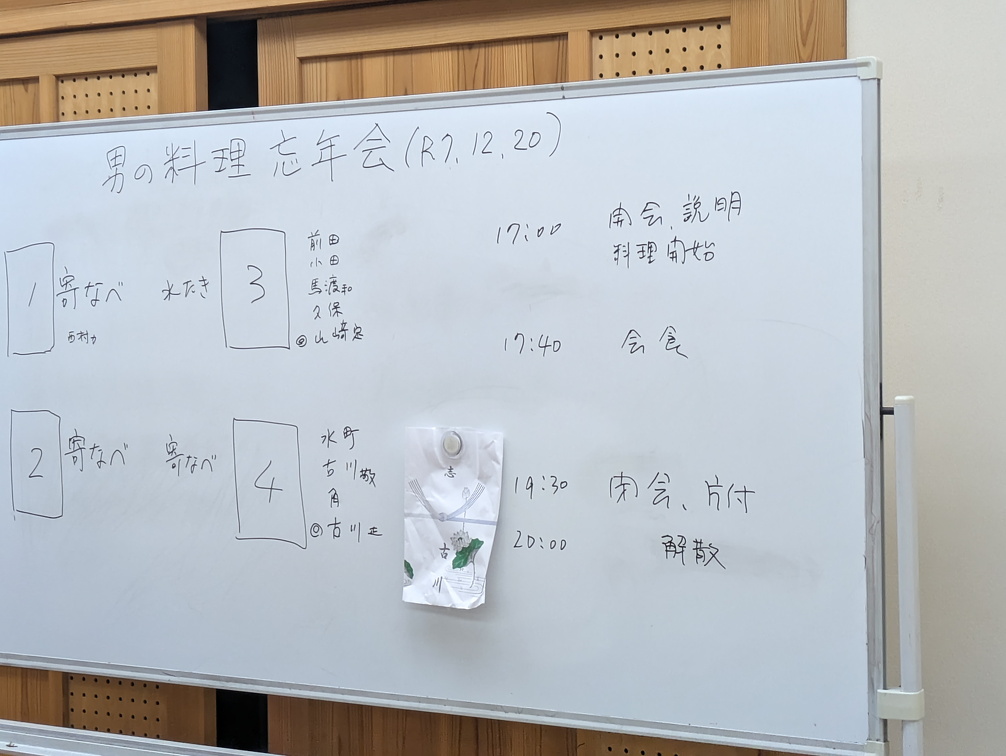 男の料理 忘年会(R7.12.20)
1
寄なべ
西村カ
水たき
3
前田
小田
馬渡和
久保
◎山﨑忠
2
寄なべ
寄なべ
4
水町
古川敬
角
◎古川正
志
古
川
17:00 開会、説明
料理開始
17:40 会食
19:30 閉会、片付
20:00 解散